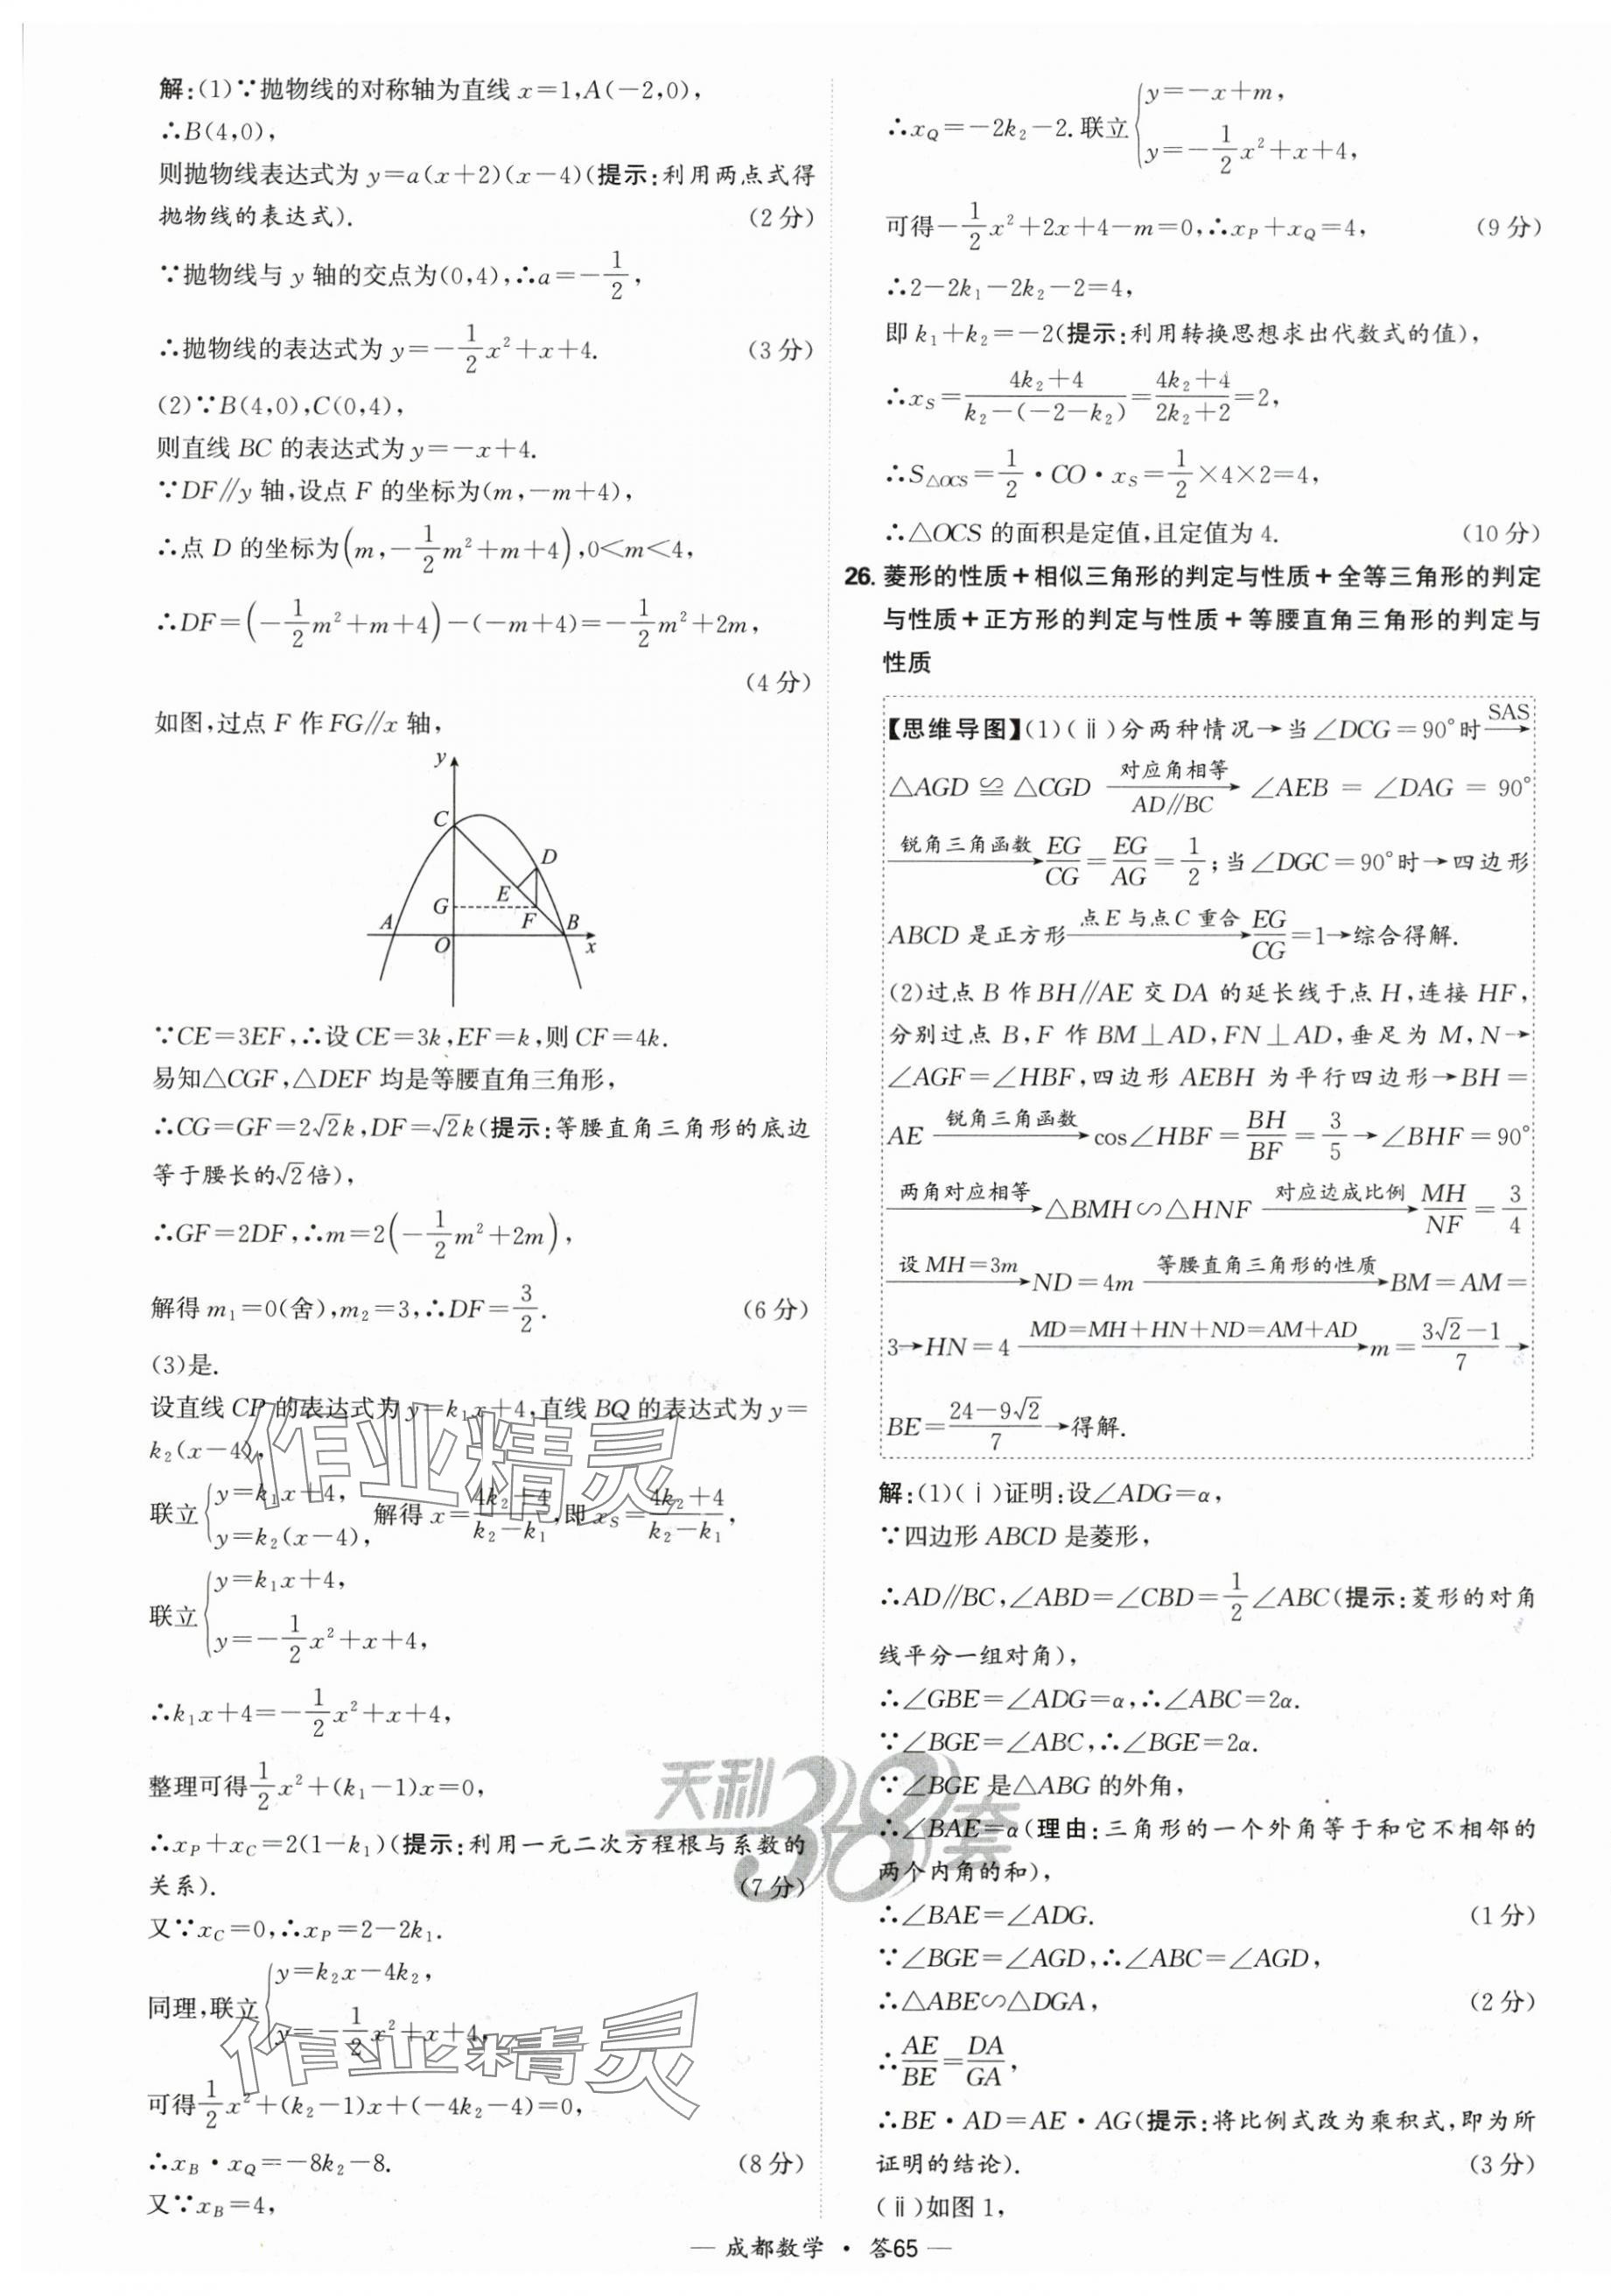 解:(1)∵抛物线的对称轴为直线 x=1,A(-2,0),
∴B(4,0),
则抛物线表达式为 y=a(x+2)(x-4)(提示:利用两点式得
抛物线的表达式). (2分)
∵抛物线与 y 轴的交点为(0,4),∴a=-1/2,
∴抛物线的表达式为 y=-1/2x²+x+4. (3分)
(2)∵B(4,0),C(0,4),
则直线 BC 的表达式为 y=-x+4.
∵DF∥y 轴,设点 F 的坐标为(m,-m+4),
∴点 D 的坐标为(m,-1/2m²+m+4),0<m<4,
∴DF=(-1/2m²+m+4)-(-m+4)=-1/2m²+2m,
(4分)
如图,过点 F 作 FG∥x 轴,
y
C
D
E
G
F
A
B
O
x
∵CE=3EF,∴设 CE=3k,EF=k,则 CF=4k.
易知△CGF,△DEF 均是等腰直角三角形,
∴CG=GF=2√2k,DF=√2k(提示:等腰直角三角形的底边
等于腰长的√2倍),
∴GF=2DF,∴m=2(-1/2m²+2m),
解得 m₁=0(舍),m₂=3,∴DF=3/2. (6分)
(3)是.
设直线 CP 的表达式为 y=k₁x+4,直线 BQ 的表达式为 y=
k₂(x-4),
联立{y=k₁x+4, y=k₂(x-4), 解得 x=(4k₂+4)/(k₂-k₁),即 x_S=(4k₂+4)/(k₂-k₁),
联立{y=k₁x+4, y=-1/2x²+x+4,
∴k₁x+4=-1/2x²+x+4,
整理可得1/2x²+(k₁-1)x=0,
∴x_P+x_C=2(1-k₁)(提示:利用一元二次方程根与系数的
关系). (7分)
又∵x_C=0,∴x_P=2-2k₁.
同理,联立{y=k₂x-4k₂, y=-1/2x²+x+4,
可得1/2x²+(k₂-1)x+(-4k₂-4)=0,
∴x_B·x_Q=-8k₂-8. (8分)
又∵x_B=4,
∴x_Q=-2k₂-2.联立{y=-x+m, y=-1/2x²+x+4,
可得-1/2x²+2x+4-m=0,∴x_P+x_Q=4, (9分)
∴2-2k₁-2k₂-2=4,
即 k₁+k₂=-2(提示:利用转换思想求出代数式的值),
∴x_S=(4k₂+4)/(k₂-(-2-k₂))=(4k₂+4)/(2k₂+2)=2,
∴S△OCS=1/2·CO·x_S=1/2×4×2=4,
∴△OCS 的面积是定值,且定值为 4. (10分)
26. 菱形的性质+相似三角形的判定与性质+全等三角形的判定
与性质+正方形的判定与性质+等腰直角三角形的判定与
性质
【思维导图】(1)(ⅱ)分两种情况→当∠DCG=90°时 SAS→
△AGD≌△CGD 对应角相等 AD∥BC→ ∠AEB=∠DAG=90°
锐角三角函数→EG/CG=EG/AG=1/2;当∠DGC=90°时→四边形
ABCD 是正方形 点E与点C重合→EG/CG=1→综合得解.
(2)过点 B 作 BH∥AE 交 DA 的延长线于点 H,连接 HF,
分别过点 B,F 作 BM⊥AD,FN⊥AD,垂足为 M,N→
∠AGF=∠HBF,四边形 AEBH 为平行四边形→BH=
AE 锐角三角函数→cos∠HBF=BH/BF=3/5→∠BHF=90°
两角对应相等→△BMH∽△HNF 对应边成比例→MH/NF=3/4
设 MH=3m→ND=4m 等腰直角三角形的性质→BM=AM=
3→HN=4 MD=MH+HN+ND=AM+AD→m=(3√2-1)/7→
BE=(24-9√2)/7→得解.
解:(1)(ⅰ)证明:设∠ADG=α,
∵四边形 ABCD 是菱形,
∴AD∥BC,∠ABD=∠CBD=1/2∠ABC(提示:菱形的对角
线平分一组对角),
∴∠GBE=∠ADG=α,∴∠ABC=2α.
∵∠BGE=∠ABC,∴∠BGE=2α.
∵∠BGE 是△ABG 的外角,
∴∠BAE=α(理由:三角形的一个外角等于和它不相邻的
两个内角的和),
∴∠BAE=∠ADG. (1分)
∵∠BGE=∠AGD,∴∠ABC=∠AGD,
∴△ABE∽△DGA, (2分)
∴AE/BE=DA/GA,
∴BE·AD=AE·AG(提示:将比例式改为乘积式,即为所
证明的结论). (3分)
(ⅱ)如图1,
作业精灵
天利38套
作业精灵
— 成都数学 · 答65 —